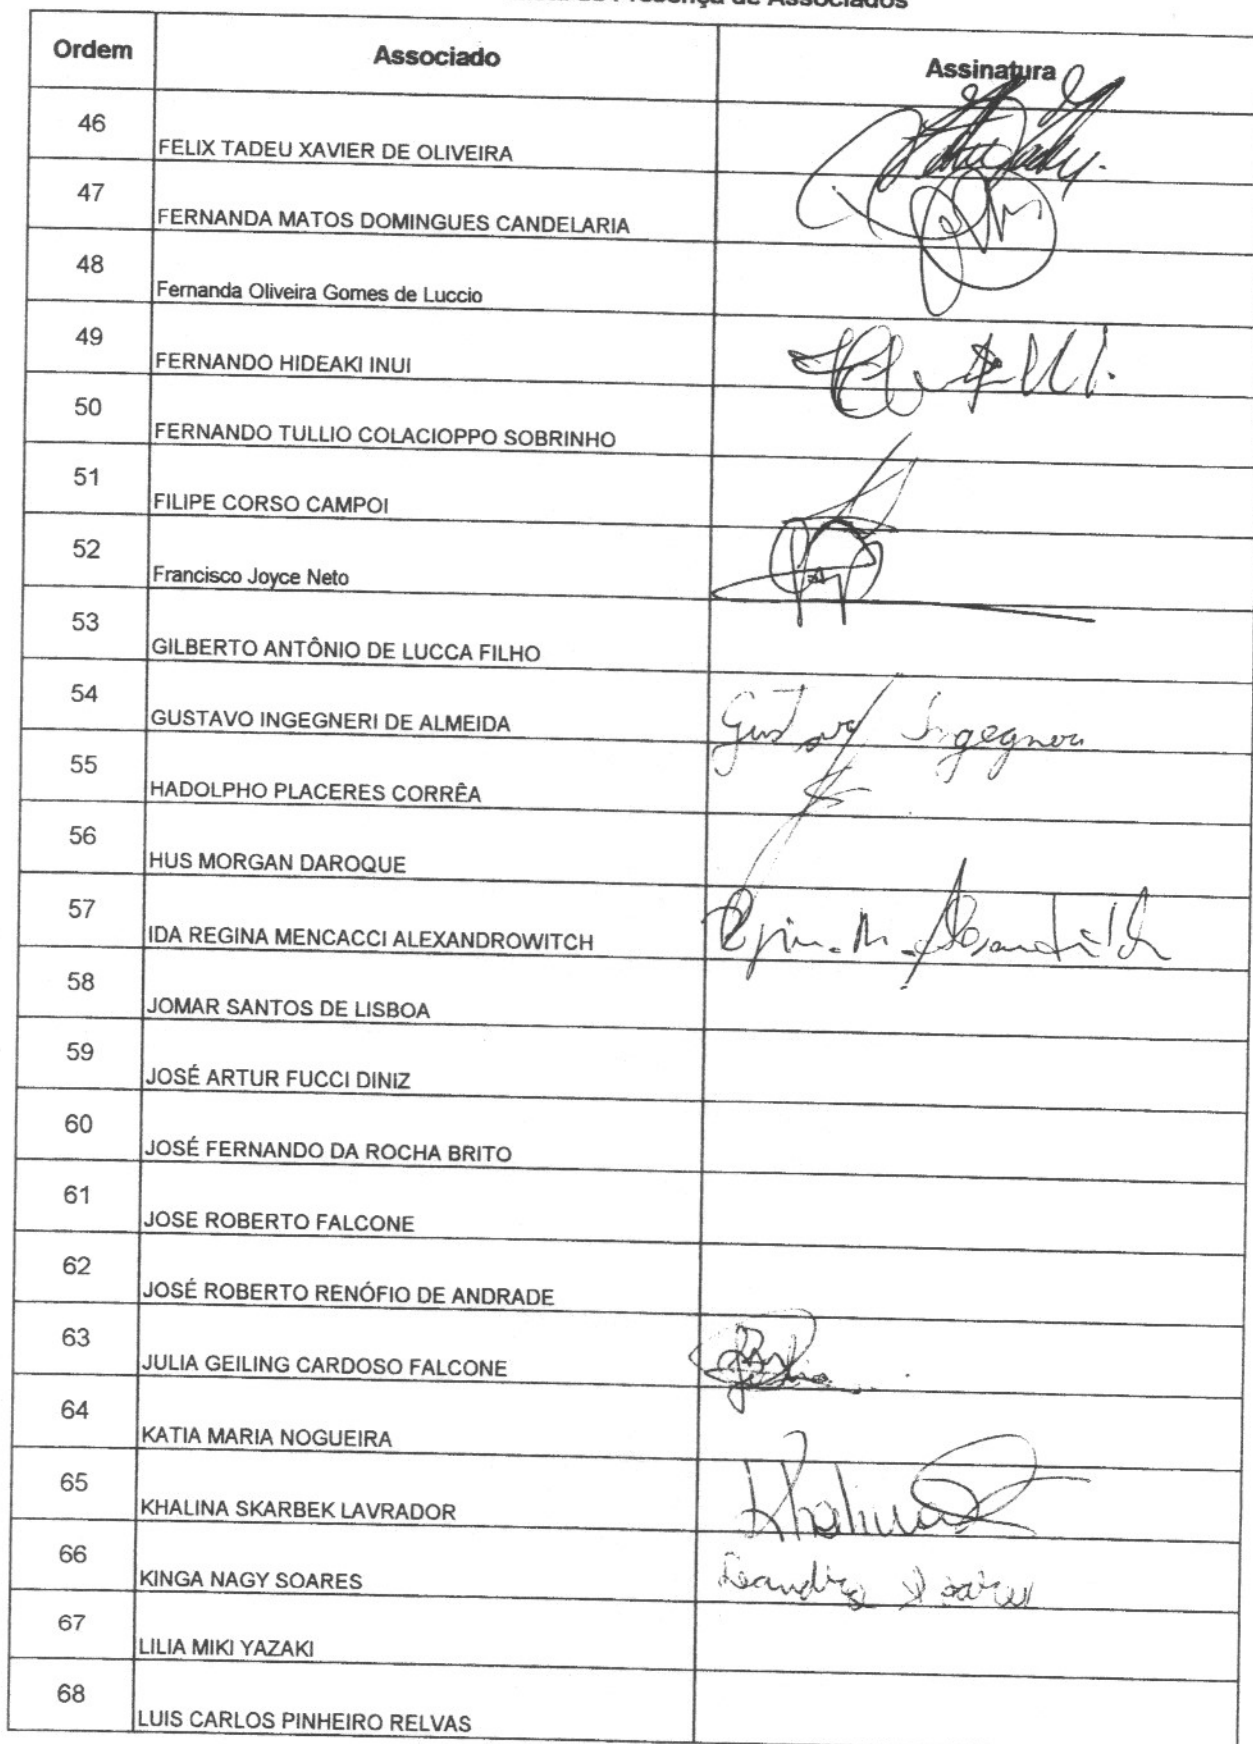 Presença de Associados
Ordem Associado Assinatura
46 FELIX TADEU XAVIER DE OLIVEIRA
47 FERNANDA MATOS DOMINGUES CANDELARIA
48 Fernanda Oliveira Gomes de Luccio
49 FERNANDO HIDEAKI INUI
50 FERNANDO TULLIO COLACIOPPO SOBRINHO
51 FILIPE CORSO CAMPOI
52 Francisco Joyce Neto
53 GILBERTO ANTÔNIO DE LUCCA FILHO
54 GUSTAVO INGEGNERI DE ALMEIDA Gustavo Ingegneri
55 HADOLPHO PLACERES CORRÊA
56 HUS MORGAN DAROQUE
57 IDA REGINA MENCACCI ALEXANDROWITCH
58 JOMAR SANTOS DE LISBOA
59 JOSÉ ARTUR FUCCI DINIZ
60 JOSÉ FERNANDO DA ROCHA BRITO
61 JOSE ROBERTO FALCONE
62 JOSÉ ROBERTO RENÓFIO DE ANDRADE
63 JULIA GEILING CARDOSO FALCONE
64 KATIA MARIA NOGUEIRA
65 KHALINA SKARBEK LAVRADOR
66 KINGA NAGY SOARES Soares
67 LILIA MIKI YAZAKI
68 LUIS CARLOS PINHEIRO RELVAS